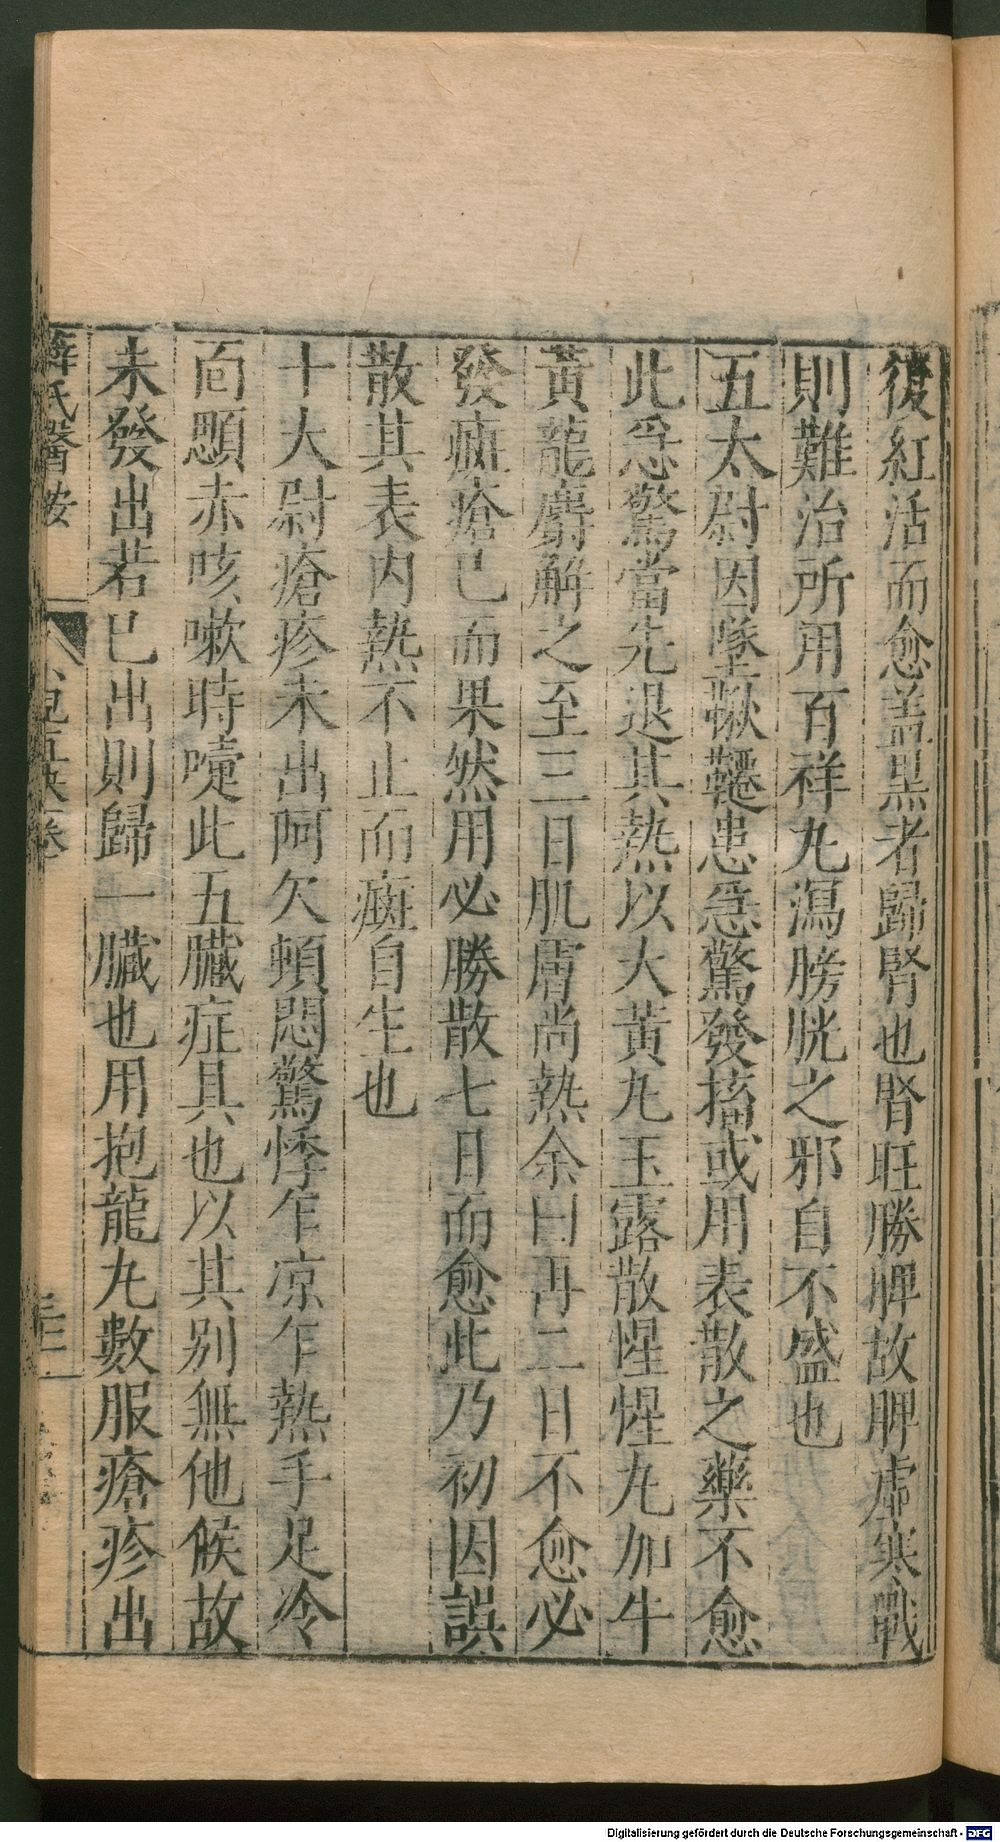 復紅活而愈蓋黑者歸腎也腎旺勝脾故脾虛寒戰
則難治所用百祥丸瀉膀胱之邪自不盛也
五太尉因墜鞦韆患急驚發搐或用表散之藥不愈
此爲驚當先退其熱以大黃丸玉露散惺惺丸加牛
黃龍麝解之至三日肌膚尚熱余曰再二日不愈必
發㾦瘡已而果然用必勝散七日而愈此乃初因誤
散其表内熱不止而癍自生也
十大尉瘡疹未出呵欠頓悶驚悸乍凉乍熱手足冷
面顋赤咳嗽時嚏此五臟症具也以其别無他候故
未發出若已出則歸一臟也用抱龍丸數服瘡疹出
薛氏醫按
Digitalisierung gefördert durch die Deutsche Forschungsgemeinschaft - DFG